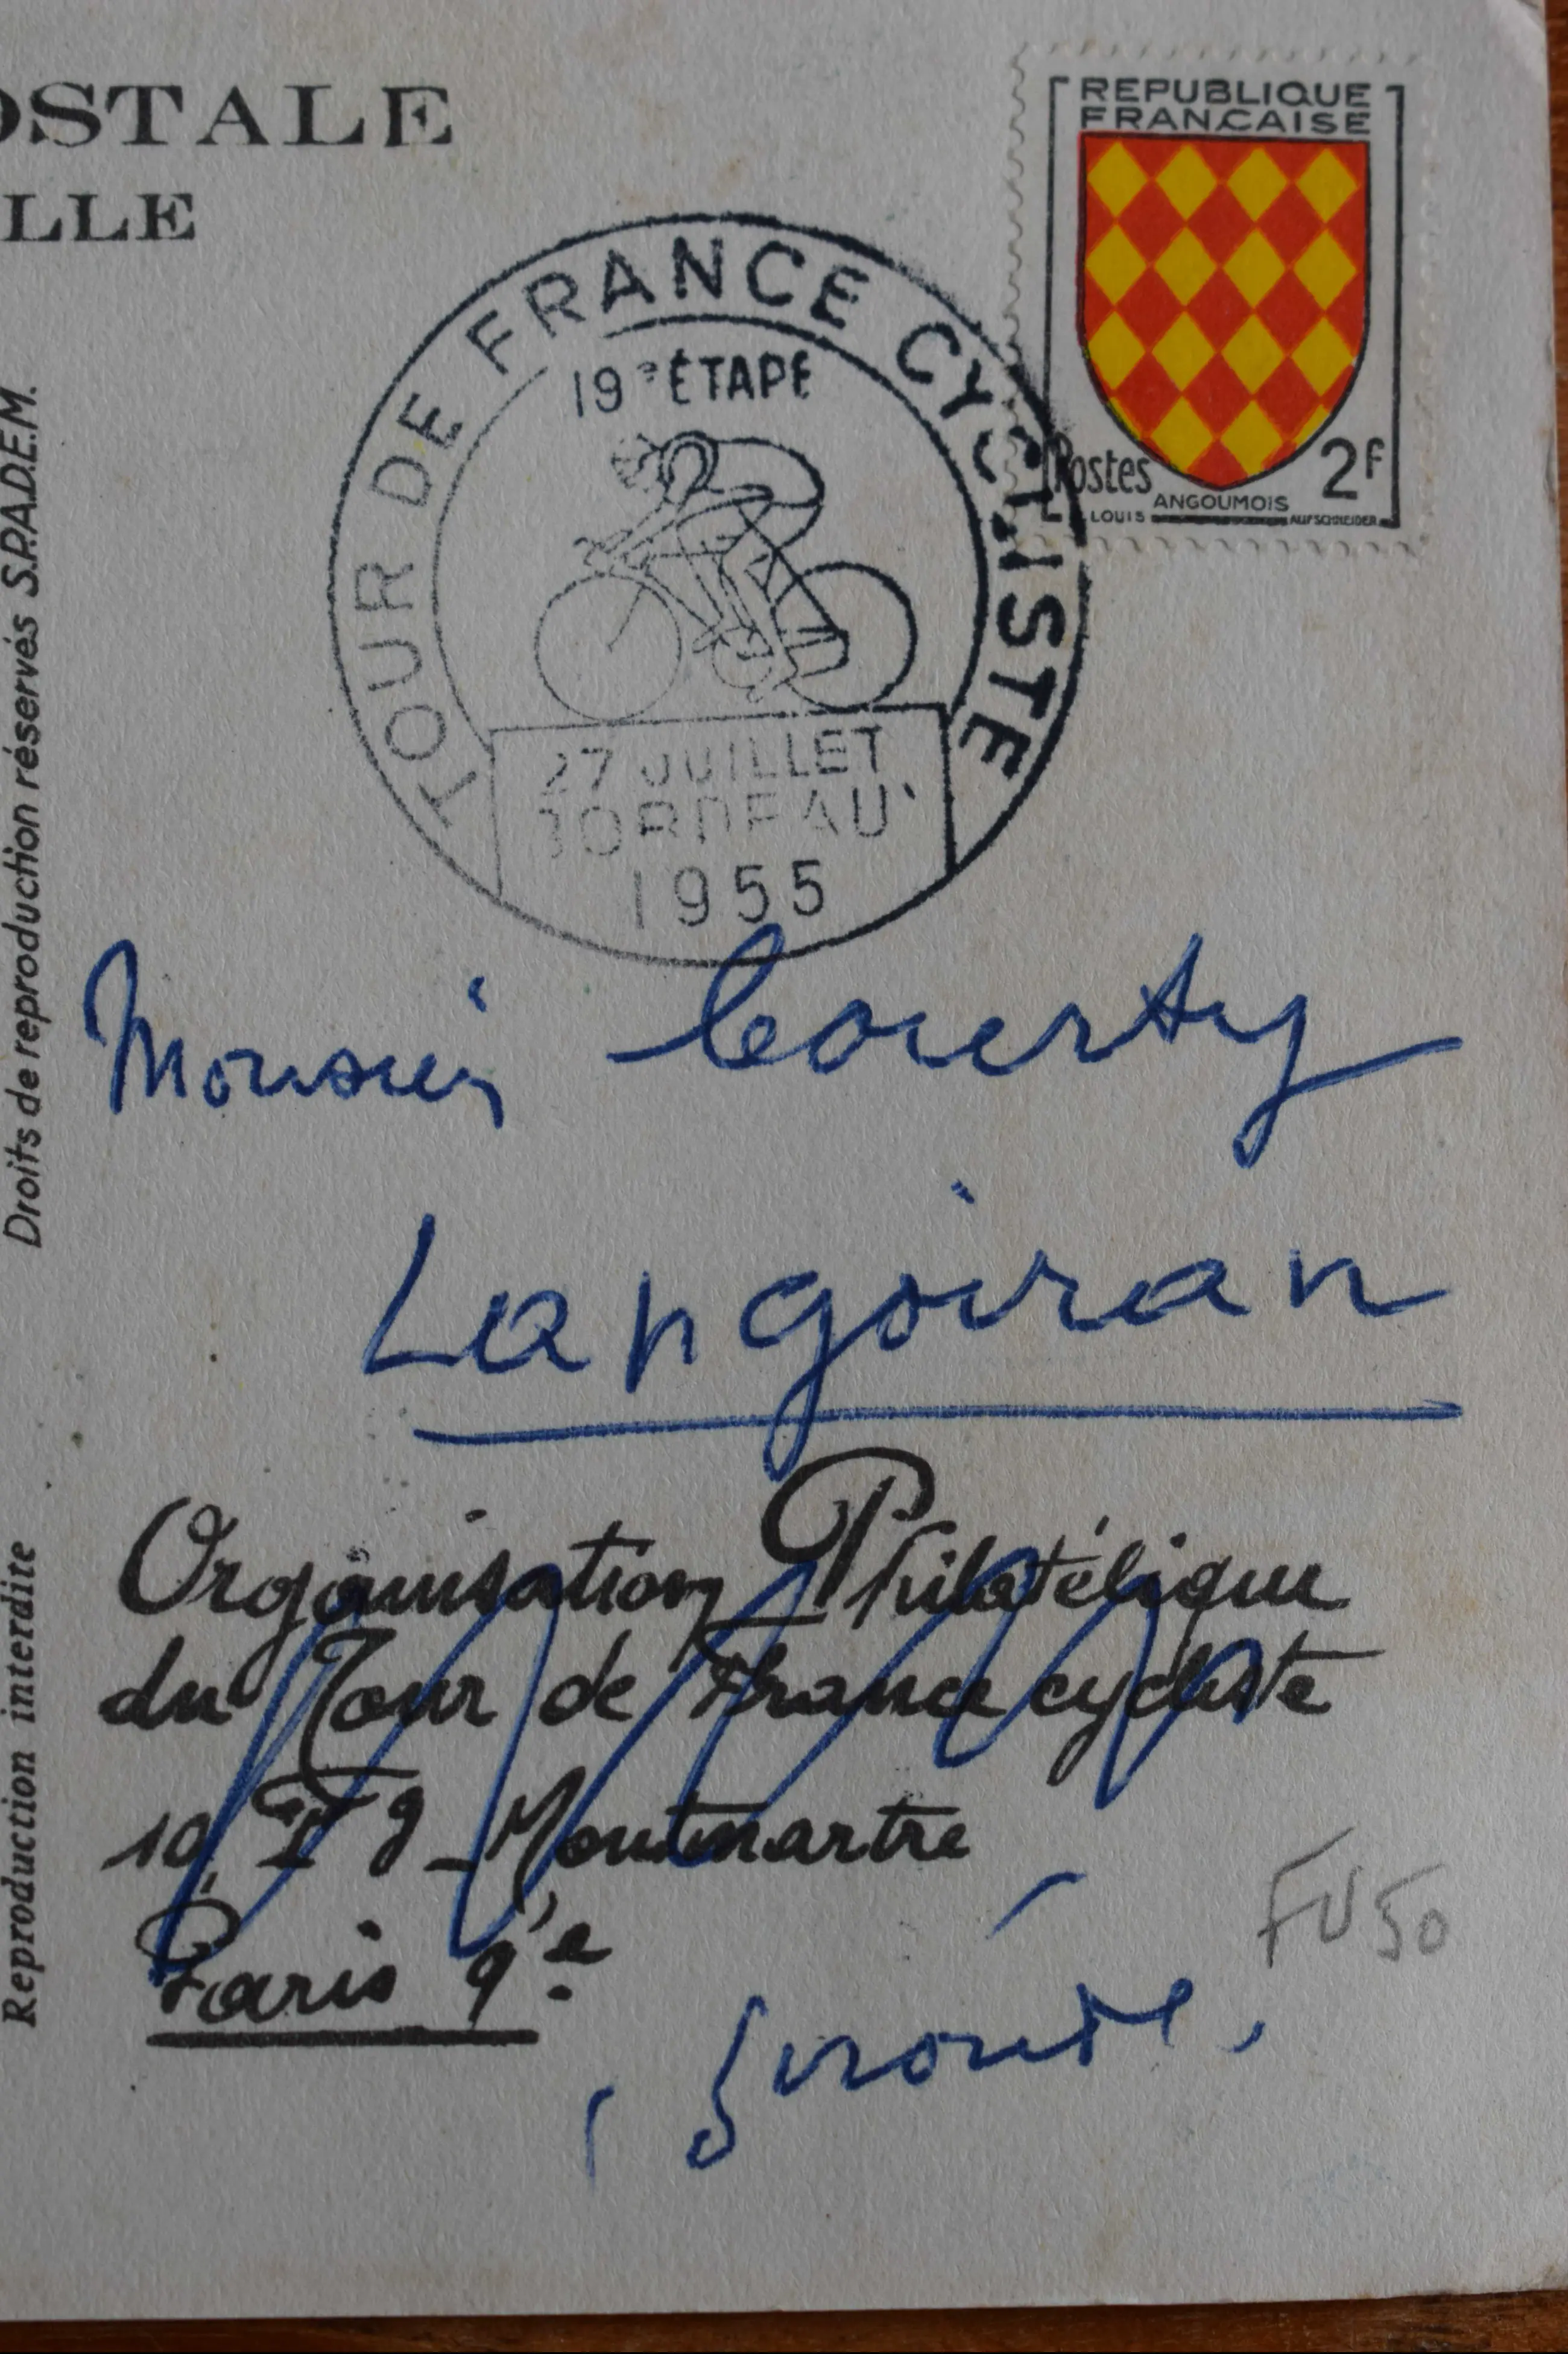 OSTALE
LLE
REPUBLIQUE
FRANCAISE
Postes
2F
ANGOUMOIS
LOUIS AUFSCHNEIDER
TOUR DE FRANCE CYCLISTE
19e ÉTAPE
27 JUILLET
BORDEAUX
1955
Droits de reproduction réservés S.P.A.D.E.M.
Reproduction interdite
Monsieur Courty
Langoiran
Organisation Philatélique
du Tour de France cycliste
10, Fg Montmartre
Paris 9e
FV50
Gironde